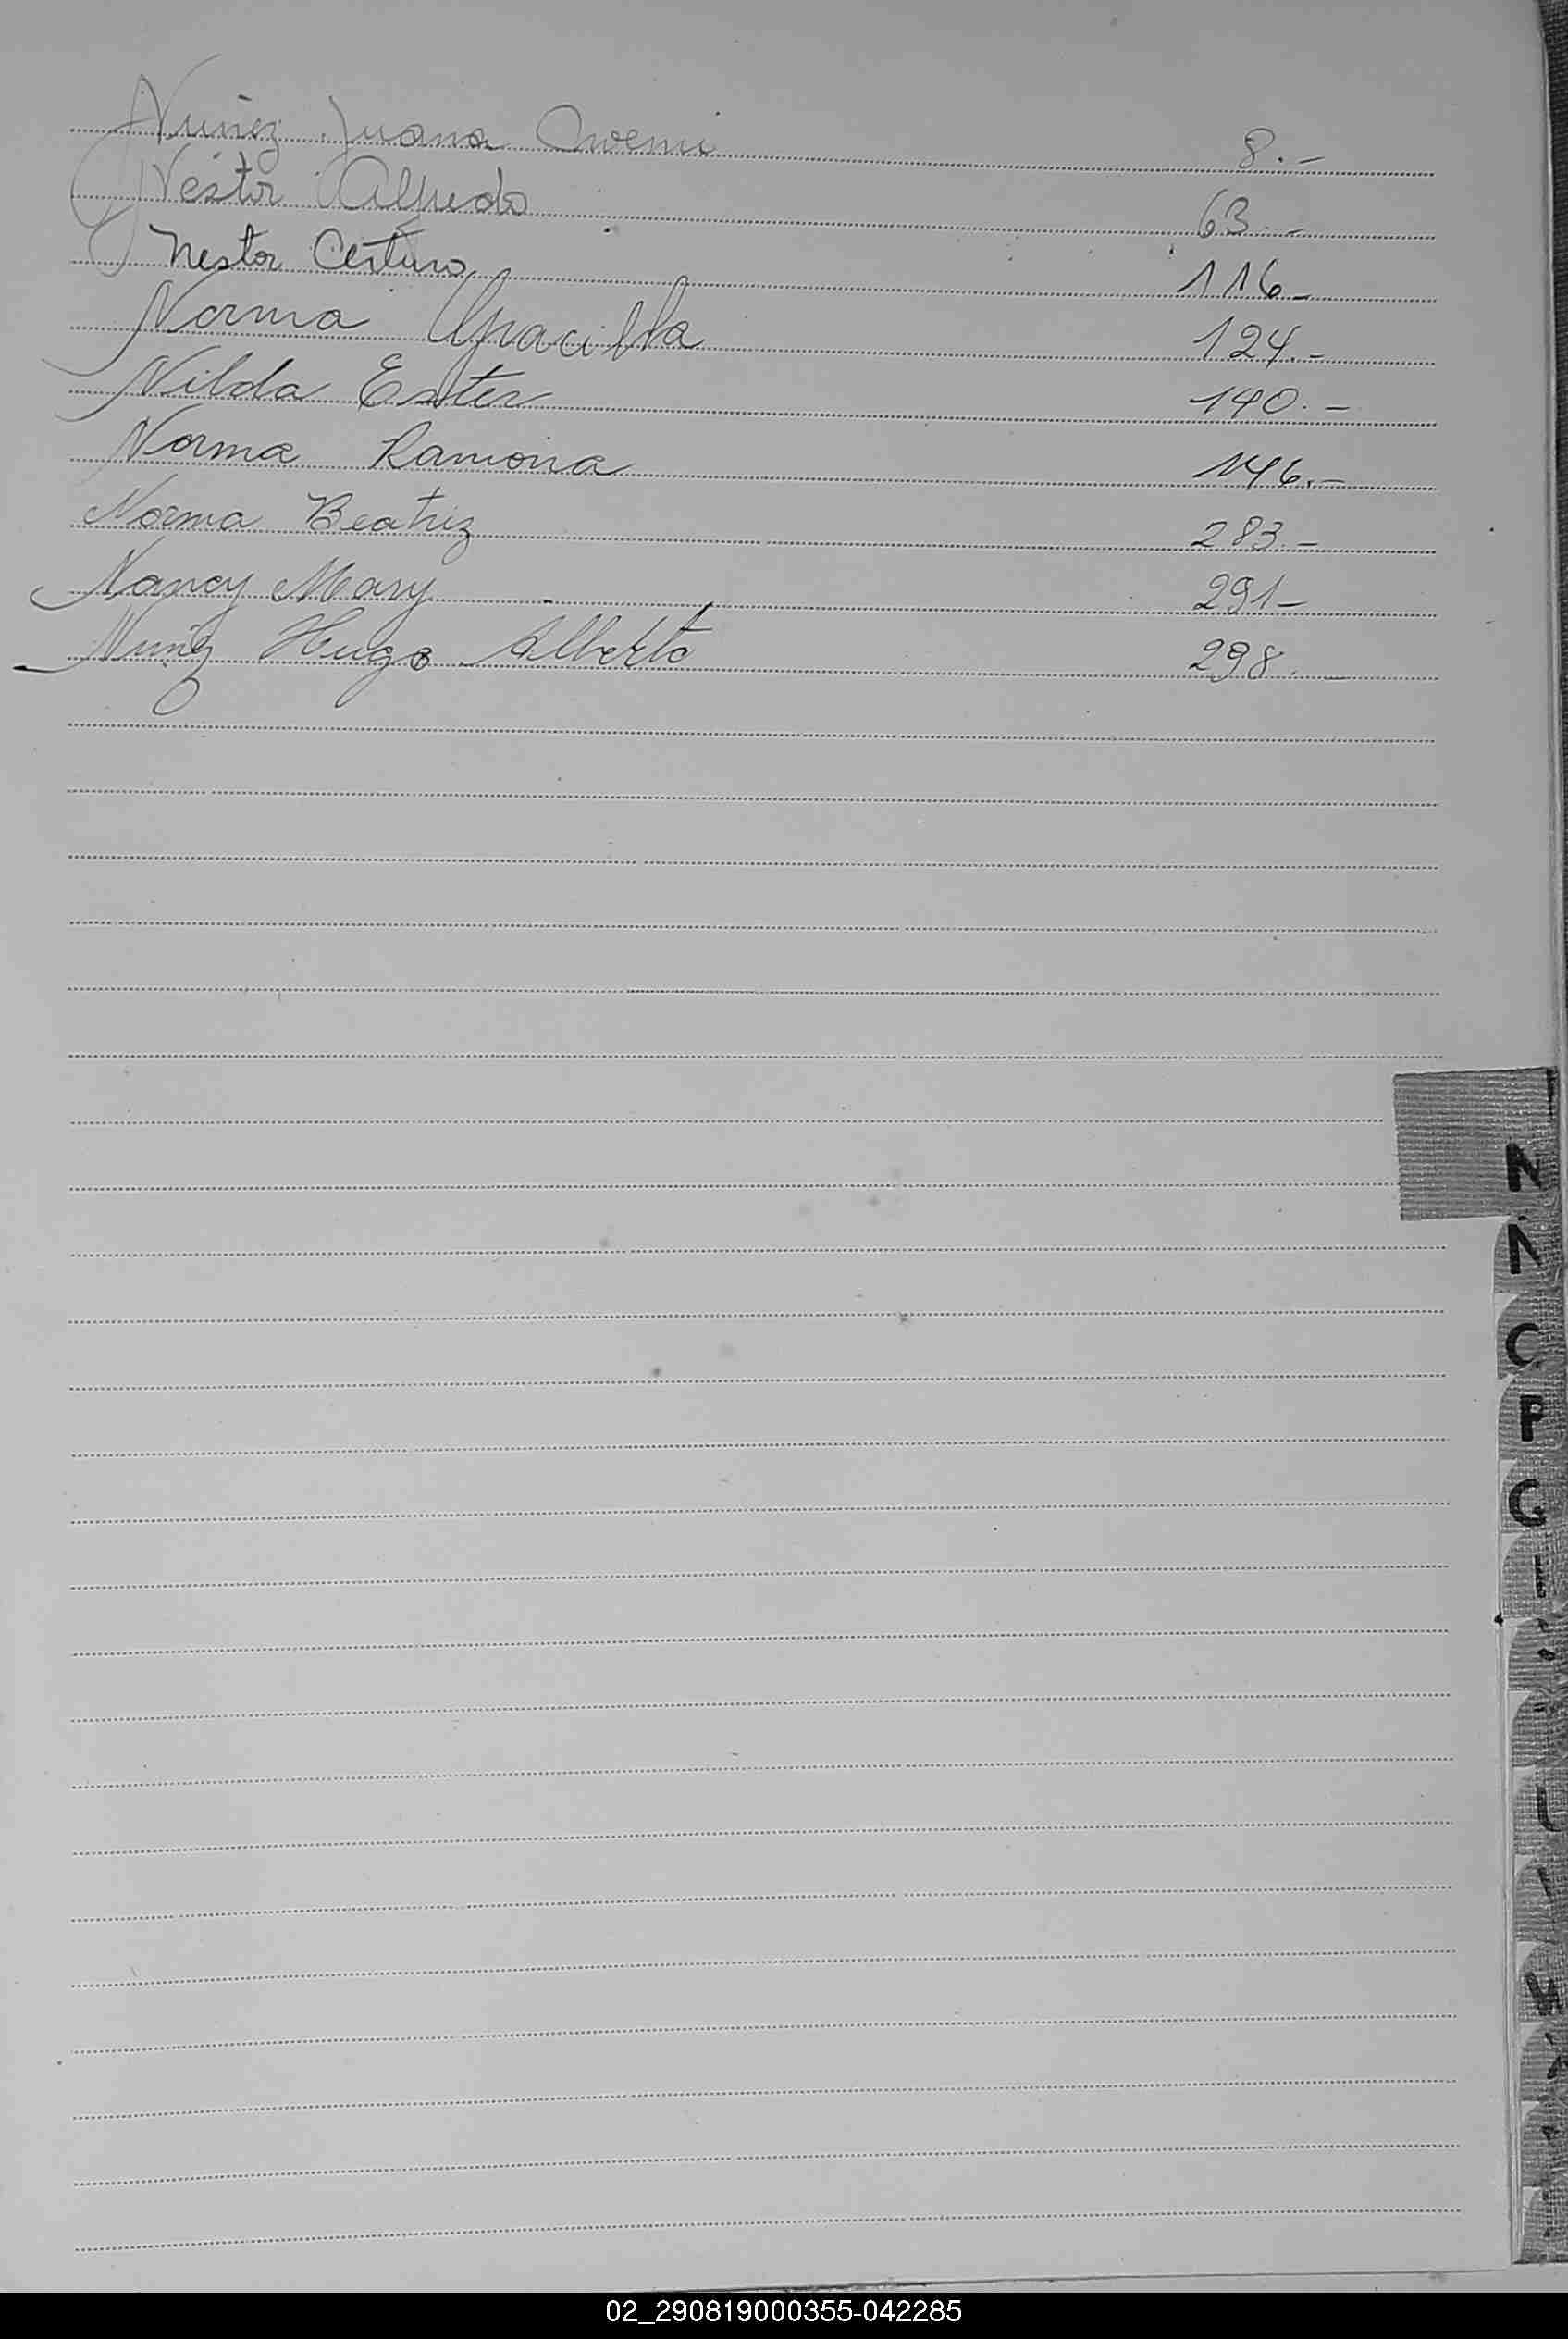 Nuñez Juana 8.-
Néstor Alfredo 63.-
Nestor Arturo 116-
Norma Graciela 124.-
Nilda Ester 140.-
Norma Ramona 146.-
Norma Beatriz 283.-
Nancy Mary 291-
Nuñz Hugo Alberto 298.-
N
P
02_290819000355-042285